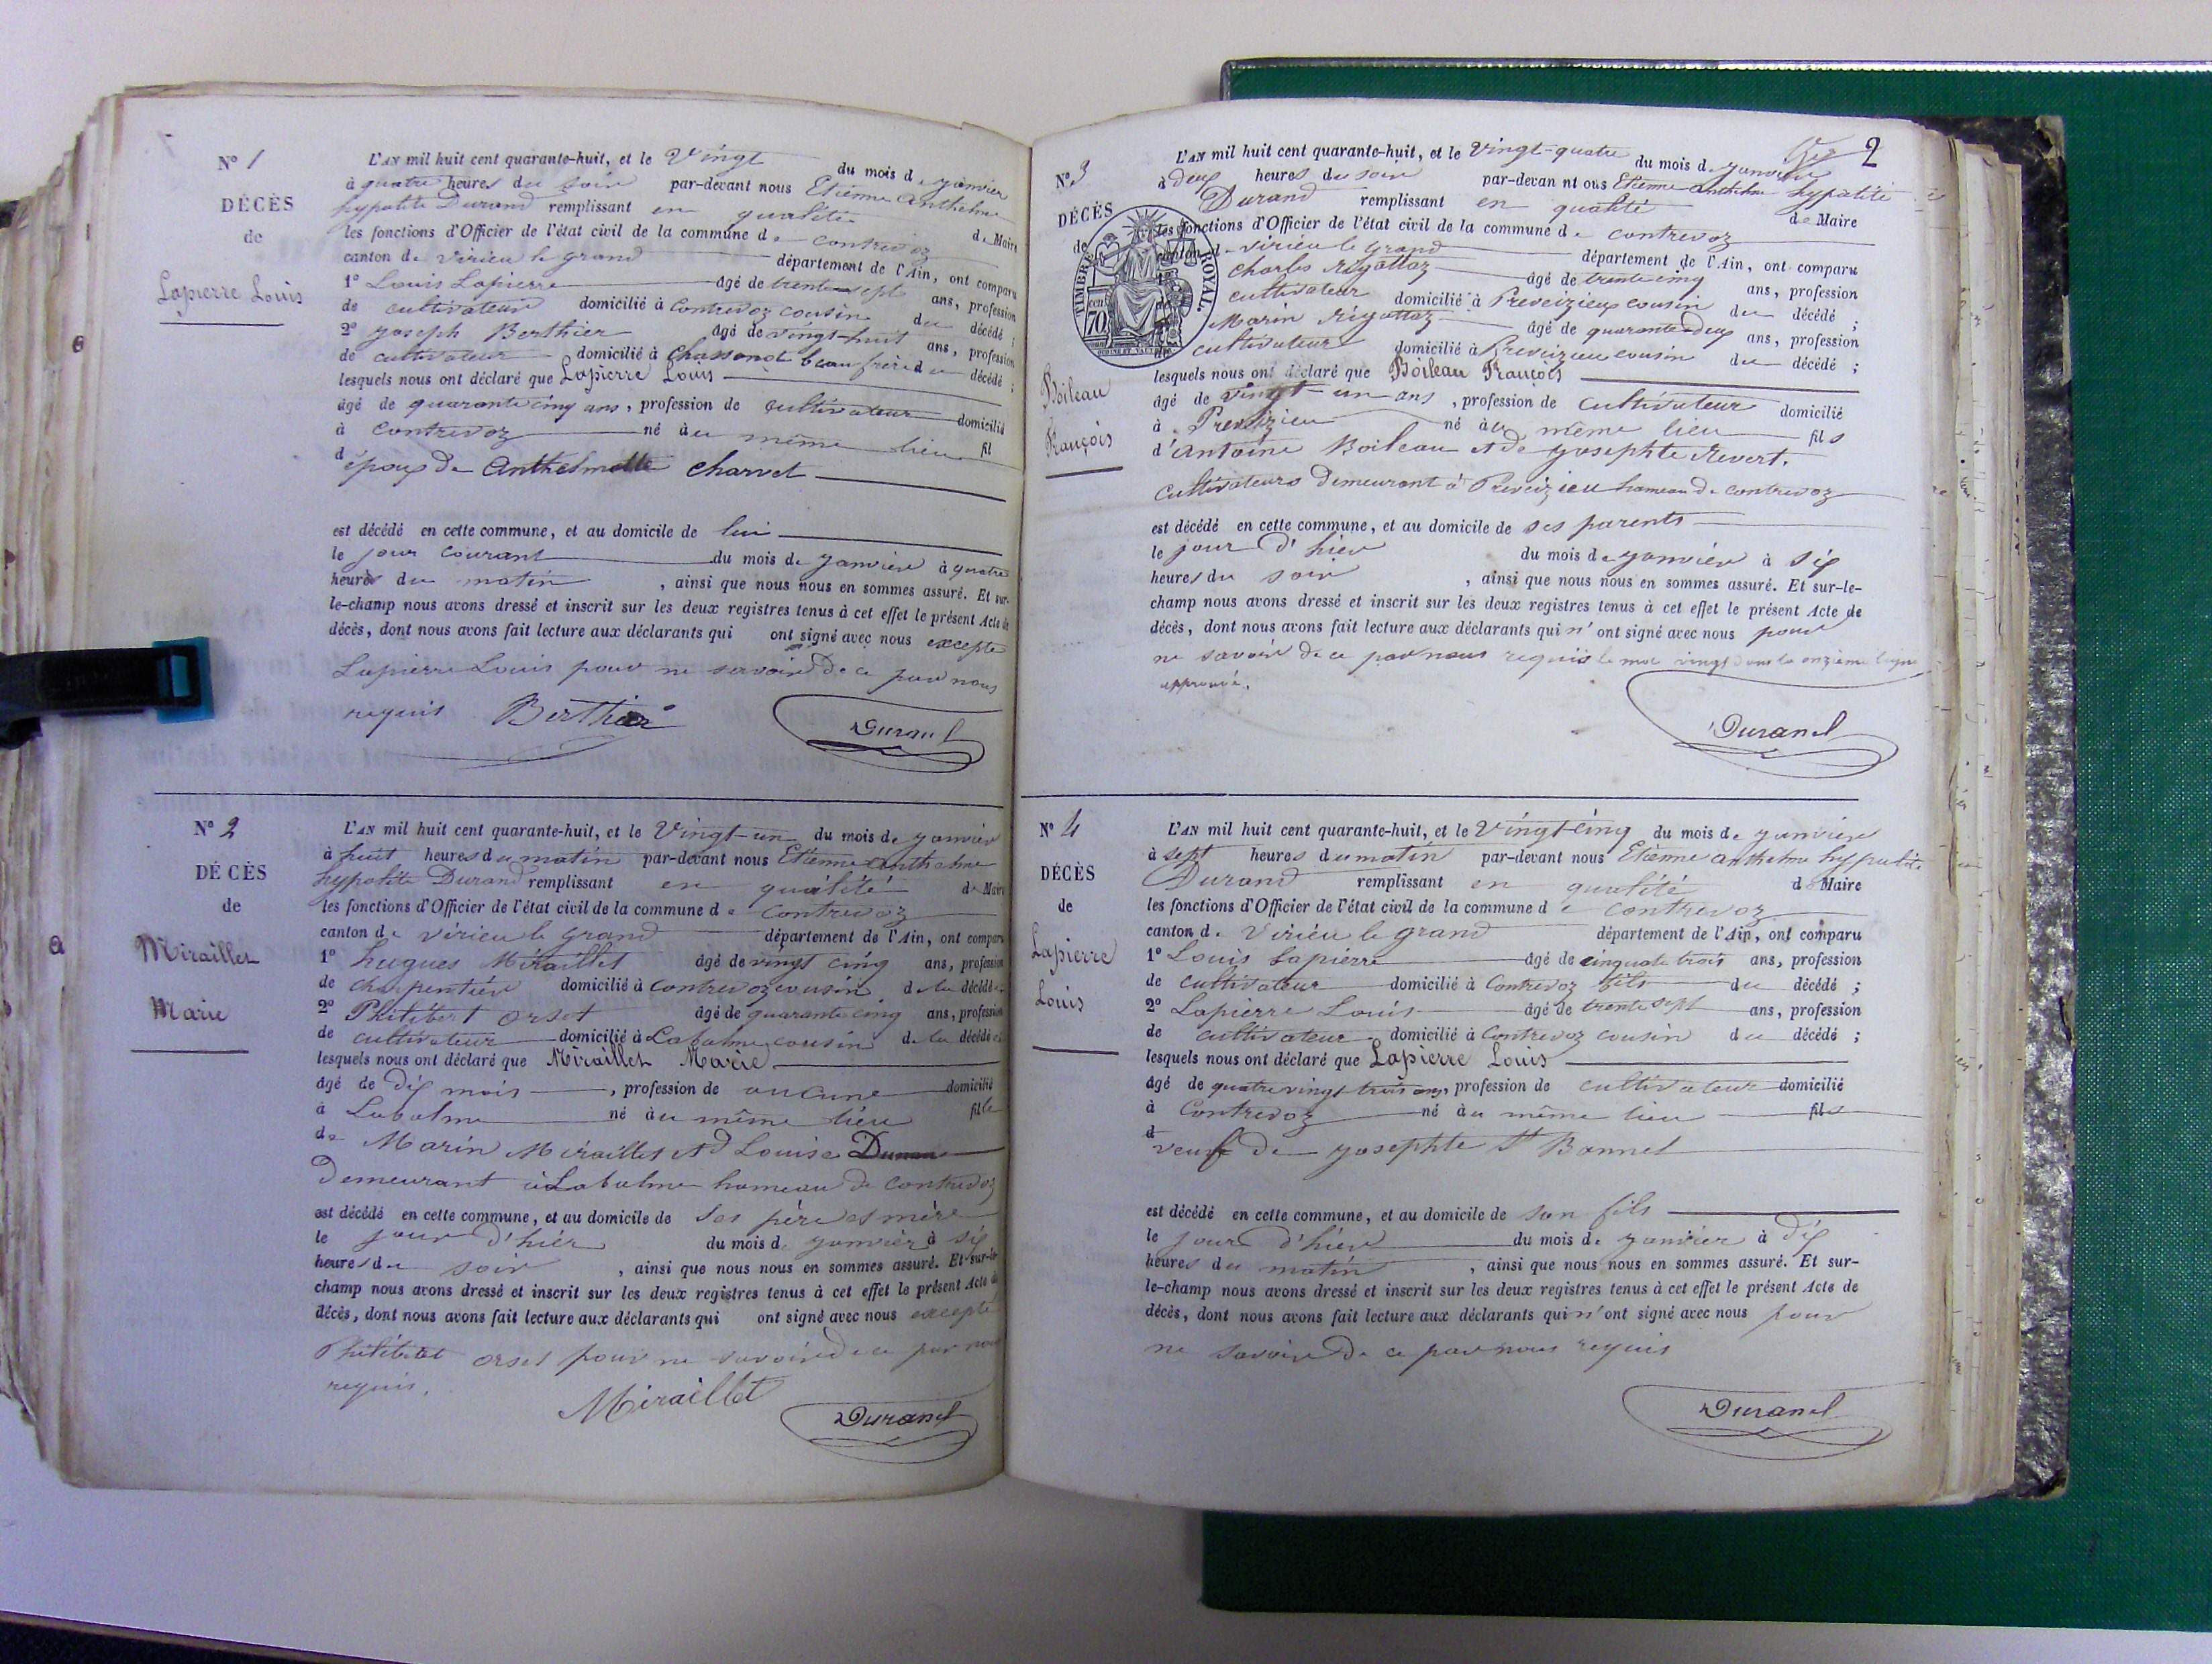 Nº 1
DÉCÈS
de
Lapierre Louis
L'AN mil huit cent quarante-huit, et le Vingt du mois de janvier
à quatre heures du soir par-devant nous Etienne Anthelme
hypolite Durand remplissant en qualité de Maire
les fonctions d'Officier de l'état civil de la commune de contrevoz
canton de virieu le grand département de l'Ain, ont comparu
1º Louis Lapierre âgé de trente sept ans, profession
de cultivateur domicilié à Contrevoz cousin du décédé ;
2º joseph Berthier âgé de vingt-huit ans, profession
de cultivateur domicilié à beaufrère du décédé ;
lesquels nous ont déclaré que Lapierre Louis
âgé de quarante cinq ans, profession de cultivateur domicilié
à contrevoz né au même lieu fil
d
époux de Anthelmette charvet
est décédé en cette commune, et au domicile de lui
le jour courant du mois de janvier à quatre
heures du matin , ainsi que nous nous en sommes assuré. Et sur-
le-champ nous avons dressé et inscrit sur les deux registres tenus à cet effet le présent Acte de
décès, dont nous avons fait lecture aux déclarants qui ont signé avec nous excepté
Lapierre Louis pour ne savoir de ce par nous
requis Berthier Durand
Nº 2
DÉCÈS
de
Miraillet
Marie
L'AN mil huit cent quarante-huit, et le Vingt-un du mois de janvier
à huit heures du matin par-devant nous Etienne anthelme
hypolite Durand remplissant en qualité de Maire
les fonctions d'Officier de l'état civil de la commune de Contrevoz
canton de virieu le grand département de l'Ain, ont comparu
1º hugues Miraillet âgé de vingt cinq ans, profession
de charpentier domicilié à Contrevoz cousin de la décédée
2º Philibert orset âgé de quarante cinq ans, profession
de cultivateur domicilié à Labalme cousin de la décédée
lesquels nous ont déclaré que Miraillet Marie
âgé de dix mois , profession de aucune domicilié
à Labalme né au même lieu fille
de Marin Miraillet et d Louise
Demeurant à Labalme hameau de contrevoz
est décédé en cette commune, et au domicile de ses père et mère
le jour d'hier du mois d janvier à six
heures du soir , ainsi que nous nous en sommes assuré. Et sur-le-
champ nous avons dressé et inscrit sur les deux registres tenus à cet effet le présent Acte de
décès, dont nous avons fait lecture aux déclarants qui ont signé avec nous excepté
Philibert orset pour ne savoir de ce par nous
requis.
Miraillet Durand
2
Nº 3
DÉCÈS
de
Boileau
François
TIMBRE ROYAL.
cen 70
L'AN mil huit cent quarante-huit, et le Vingt-quatre du mois de janvier
à deux heures du soir par-devan nt ous Etienne anthelme hypolite
Durand remplissant en qualité de Maire
les fonctions d'Officier de l'état civil de la commune de contrevoz
canton de virieu le grand département de l'Ain, ont comparu
Charles rigottaz âgé de trente cinq ans, profession
cultivateur domicilié à Preveizieux cousin du décédé ;
Marin rigottaz âgé de quarante deux ans, profession
cultivateur domicilié à Preveizieu cousin du décédé ;
lesquels nous ont déclaré que Boileau François
âgé de vingt-un ans , profession de cultivateur domicilié
à né au même lieu fils
d'antoine Boileau et de josephte revert.
Cultivateurs Demeurant à Preveizieu hameau de contrevoz
est décédé en cette commune, et au domicile de ses parents
le jour d'hier du mois de janvier à six
heures du soir , ainsi que nous nous en sommes assuré. Et sur-le-
champ nous avons dressé et inscrit sur les deux registres tenus à cet effet le présent Acte de
décès, dont nous avons fait lecture aux déclarants qui n'ont signé avec nous pour
ne savoir de ce par nous requis le mot vingt dans la onzième ligne
approuvé.
Durand
Nº 4
DÉCÈS
de
Lapierre
Louis
L'AN mil huit cent quarante-huit, et le Vingt-cinq du mois de janvier
à sept heures du matin par-devant nous Etienne anthelme hypolite
Durand remplissant en qualité d Maire
les fonctions d'Officier de l'état civil de la commune de contrevoz
canton de Virieu le grand département de l'Ain, ont comparu
1º Louis Lapierre âgé de cinquate trois ans, profession
de cultivateur domicilié à Contrevoz fils du décédé ;
2º Lapierre Louis âgé de trente sept ans, profession
de cultivateur domicilié à Contrevoz cousin du décédé ;
lesquels nous ont déclaré que Lapierre Louis
âgé de quatre vingt-trois ans, profession de cultivateur domicilié
à Contrevoz né au même lieu fils
d
veuf de josephte St Bonnet
est décédé en cette commune, et au domicile de son fils
le jour d'hier du mois de janvier à dix
heures du matin , ainsi que nous nous en sommes assuré. Et sur-
le-champ nous avons dressé et inscrit sur les deux registres tenus à cet effet le présent Acte de
décès, dont nous avons fait lecture aux déclarants qui n'ont signé avec nous pour
ne savoir de ce par nous requis
Durand